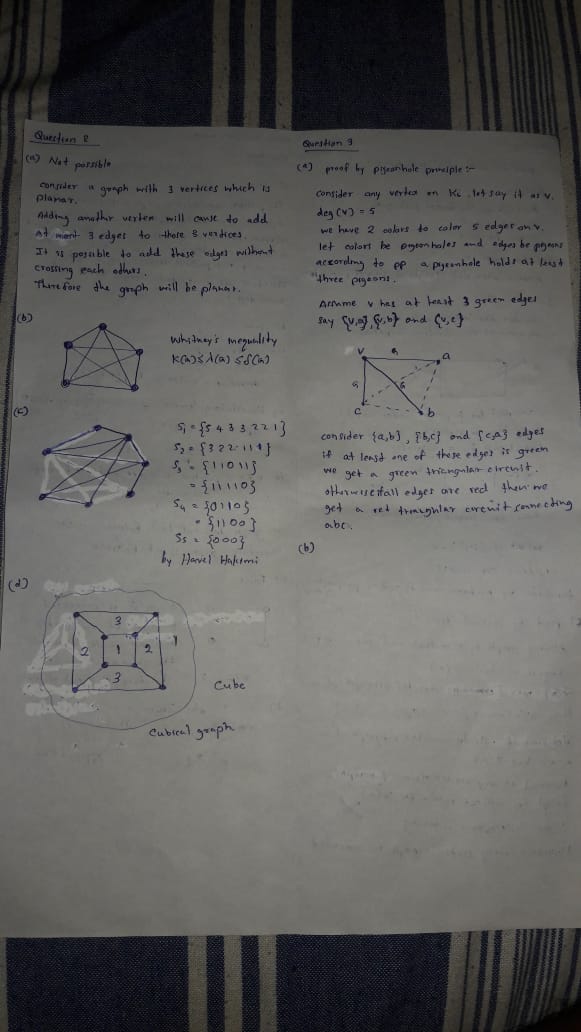 Question 8
(a) Not possible
consider a graph with 3 vertices which is
planar.
Adding another vertex will cause to add
At most 3 edges to those 3 vertices.
It is possible to add these edges without
crossing each others.
Therefore the graph will be planar.
(b)
Whitney's inequality
K(G) ≤ λ(G) ≤ δ(G)
(c)
S₁ = {5 4 3 3 2 2 1}
S₂ = {3 2 2 1 1 1}
S₃ = {1 1 0 1 1}
= {1 1 1 1 0}
S₄ = {0 1 1 0}
= {1 1 0 0}
S₅ = {0 0 0}
by Havel Hakimi
(d)
3
2 1 2 1
3
Cube
Cubical graph
Question 9
(a) proof by pigeonhole principle :-
consider any vertex on K₆. let say it as v.
deg (v) = 5
we have 2 colors to color 5 edges on v.
let colors be pigeonholes and edges be pigeons
according to pp a pigeonhole holds at least
three pigeons.
Assume v has at least 3 green edges
say {v,a}, {v,b} and {v,c}
v G a
G G
c b
consider {a,b}, {b,c} and {c,a} edges
if at least one of these edges is green
we get a green triangular circuit.
otherwise if all edges are red then we
get a red triangular circuit connecting
abc.
(b)